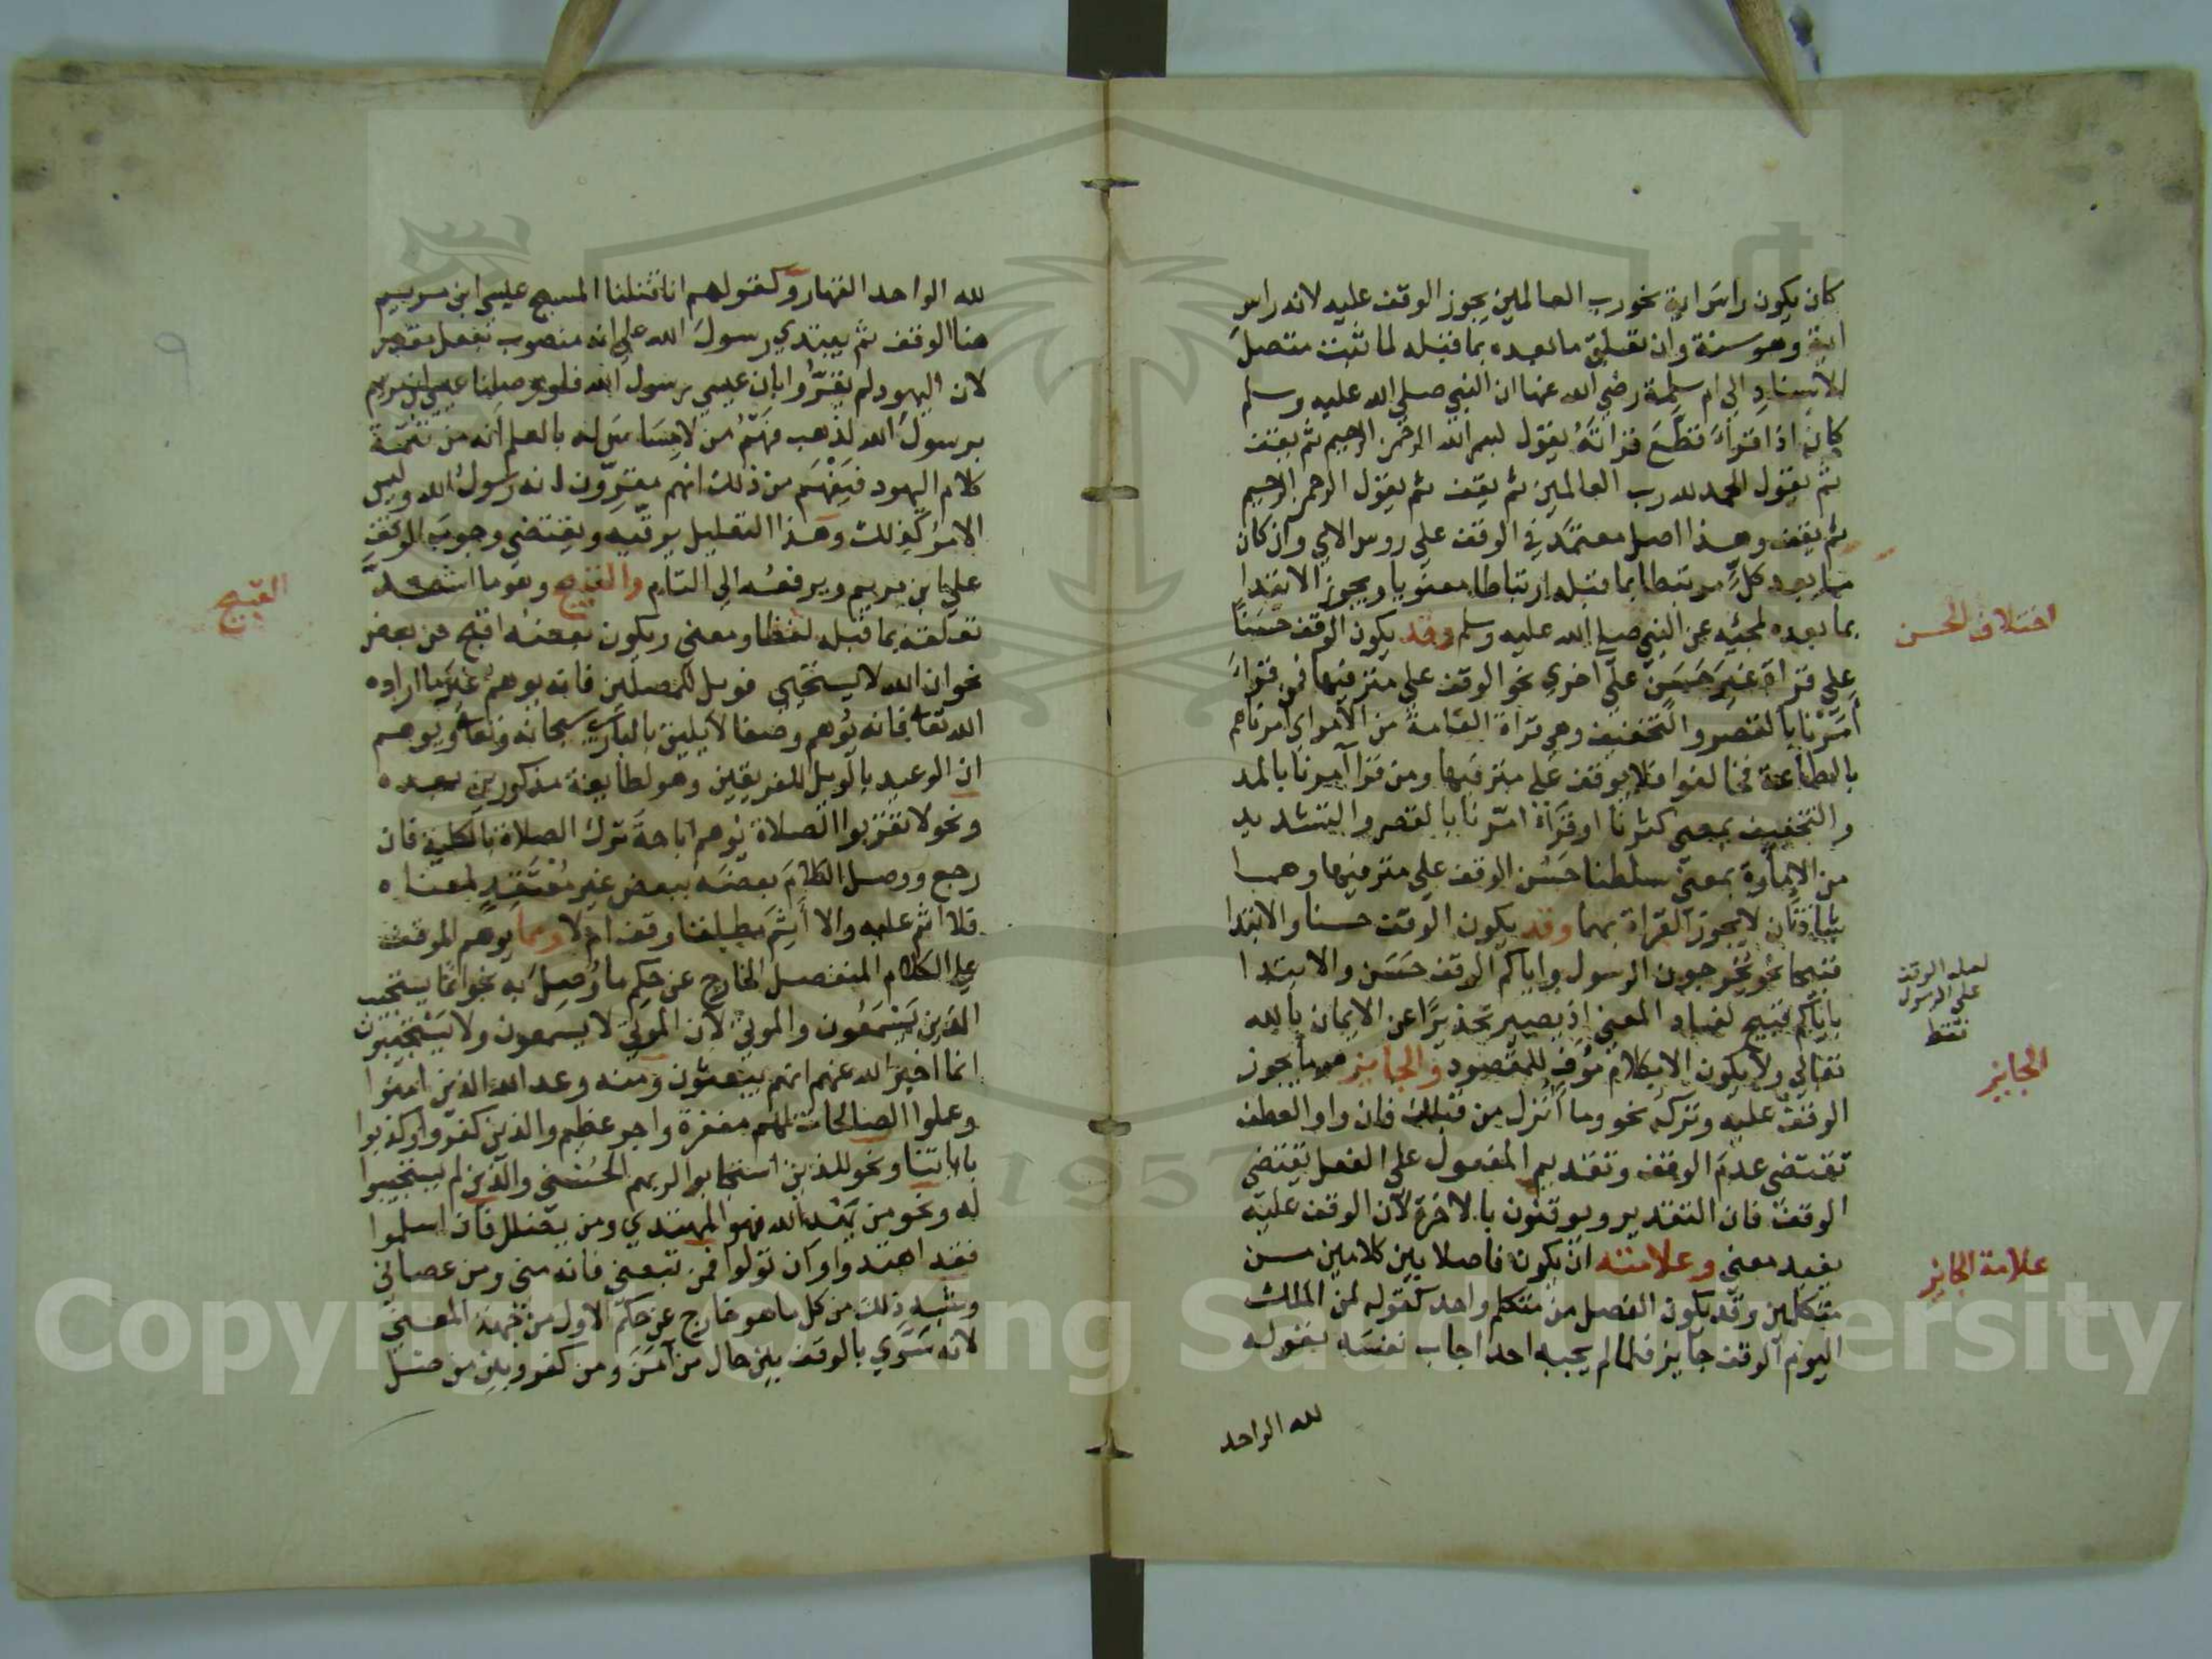 كان يكون راسَ اية نحو رب العالمين يجوز الوقف عليه لانه راس
اية وهو سنة وان تعلق ما بعده بما قبله لما ثبت متصل
الاسناد الي ام سلمة رضي الله عنها ان النبي صلي الله عليه وسلم
كان اذا قرأ قطَّعَ قراته يقول بسم الله الرحمن الرحيم ثم يقف
ثم يقول الحمد لله رب العالمين ثم يقف ثم يقول الرحمن الرحيم
ثم يقف وهذا اصل معتمد في الوقف علي روس الاي وان كان
ما بعد كلٍّ مرتبطا بما قبله ارتباطا معنويا ويجوز الابتدا
بما بعده لمجئيه عن النبي صلي الله عليه وسلم وقد يكون الوقف حسنًا
علي قراة غير حَسَنٍ علي اخري نحو الوقف علي مترفيها فمن قرأ
أمَرْنا بالقصر والتخفيف وهي قراة العامة من الامر اي امرناهم
بالطاعة فخالفوا فلا يوقف علي مترفيها ومن قرا آمرنا بالمد
والتخفيف بمعني كثرنا او قرأة امّرنا بالقصر والتشديد
من الامارة بمعني سلطنا حَسُن الوقف علي مترفيها وهما
شاذتان لا يجوز القراة بهما وقد يكون الوقف حسنا والابتدا
قبيحا نحو يخرجون الرسول واياكم الوقف حَسَن والابتدا
باياكم قبيح لفساد المعني اذ يصير تحذيرًا عن الايمان بالله
تعالي ولا يكون الا بكلام مُوَفٍ للمقصود والجايز ما يجوز
الوقف عليه وتركه نحو وما أُنزل من قبلك فان واو العطف
تقتضي عدمَ الوقف وتقديم المفعول علي الفعل يقتضي
الوقف فان التقدير ويوقنون بالاخرة لان الوقف عليه
يفيد معني وعلامته ان يكون فاصلا بين كلامين من
متكلمين وقد يكون الفصل من متكلم واحد كقوله لمن الملك
اليوم الوقف جايز فلما لم يجبه احد اجاب نفسَه بقوله
لله الواحد
اختلاف الحسن
لعله الوقف
علي الرسول
فقط
الجايز
علامة الجايز
لله الواحد القهار وكقولهم انا قتلنا المسيح عيسي ابن مريم
هنا الوقف ثم يبتدي رسولَ الله علي انه منصوب بفعل مقدر
لان اليهود لم يقرّوا بان عيسي رسول الله فلو وصلنا عيسي ابن مريم
برسول الله لذهب فَهْمُ من لا مِسَاسَ له بالعلم انه من تتمّة
كلام اليهود فيَفْهَم من ذلك انهم مقرّون انه رسول الله وليس
الامر كذلك وهذا التعليل يرقّيه ويقتضي وجوب الوقف
علي ابن مريم ويرفعُه الي التام والقبيح وهو ما اشتد
تعلقه بما قبله لفظا ومعني ويكون بعضه اقبح من بعض
نحو ان الله لا يستحيي فويل للمصلين فانه يوهم غير ما اراده
الله تعالي فانه يُوهم وصفا لا يليق بالباري سبحانه وتعالي ويوهم
ان الوعيد بالويل للفريقين وهو لطايفة مذكورين بعده
ونحو لا تقربوا الصلاة يُوهم اباحةَ ترك الصلاة بالكلية فان
رجع ووصل الكلامَ بعضَه ببعض غير مُعْتَقِدٍ لمعناه
فلا اثم عليه والا أَثِمَ مطلقا وقف ام لا ومما يوهم الوقف
علي الكلام المنفصل الخارج عن حكم ما وُصِلَ به نحو انما يستجيب
الذين يَسْمَعُون والموتي لان الموتي لا يسمعون ولا يستجيبون
انما اخبر الله عنهم انهم يبعثون ومنه وعد الله الذين امنوا
وعملوا الصالحات لهم مغفرة واجر عظيم والذين كفروا وكذبوا
باياتنا ونحو للذين استجابوا لربهم الحُسْني والذين لم يستجيبوا
له ونحو من يَهْدِ الله فهو المهتدي ومن يضلل فان اسلموا
فقد اهتدوا وان تولوا فمن تبعني فانه مني ومن عصاني
وشبه ذلك من كل ما هو خارج عن حكم الاول من جهة المعني
لانه سَوَّي بالوقف بين حال من آمَنَ ومن كفر وبين من ضل
القبيح
٩
Copyright © King Saud University
1957